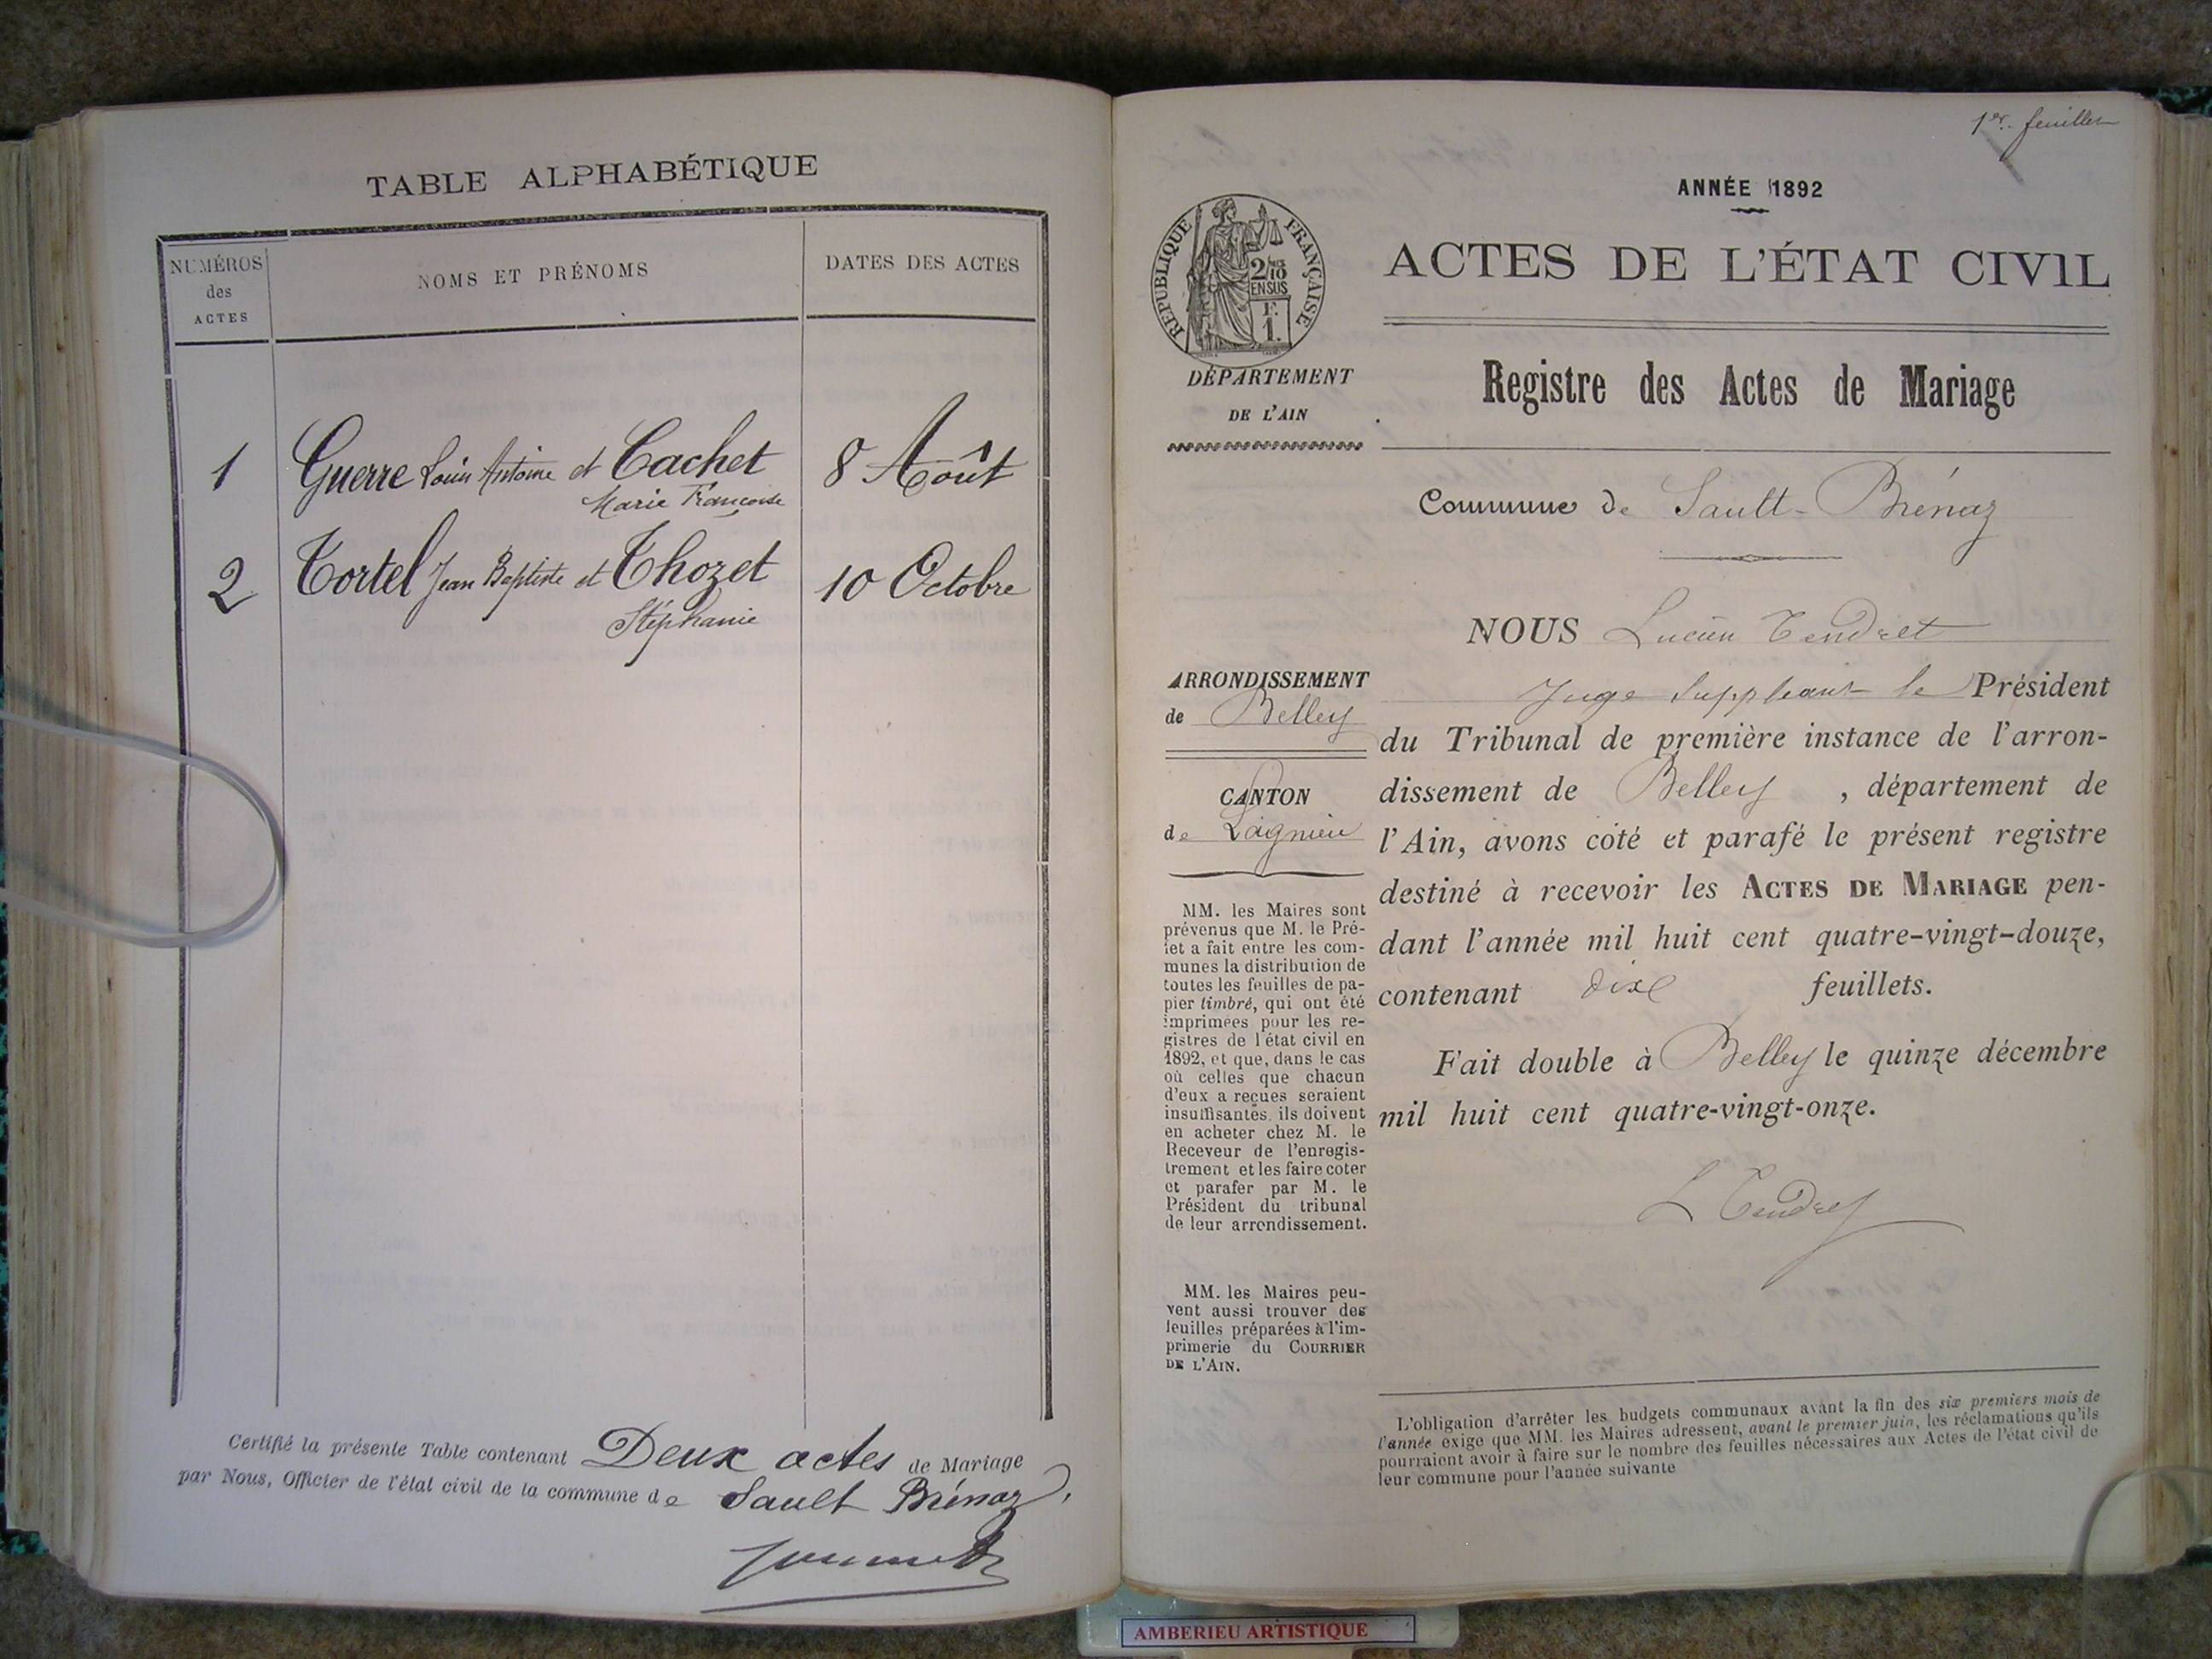 TABLE ALPHABÉTIQUE
NUMÉROS
des
ACTES
NOMS ET PRÉNOMS
DATES DES ACTES
1 Guerre Louis Antoine et Cachet 8 Août
Marie Françoise
2 Tortel Jean Baptiste et Thozet 10 Octobre
Stéphanie
Certifié la présente Table contenant Deux actes de Mariage
par Nous, Officier de l'état civil de la commune de Sault Brénaz,
1er feuillet
ANNÉE 1892
RÉPUBLIQUE FRANÇAISE
2/10
EN SUS
F.
1.
ACTES DE L'ÉTAT CIVIL
DÉPARTEMENT
DE L'AIN
Registre des Actes de Mariage
Commune de Sault-Brénaz
NOUS Lucien Tendret
Juge Suppléant le Président
du Tribunal de première instance de l'arron-
dissement de Belley, département de
l'Ain, avons coté et parafé le présent registre
destiné à recevoir les ACTES DE MARIAGE pen-
dant l'année mil huit cent quatre-vingt-douze,
contenant dix feuillets.
Fait double à Belley le quinze décembre
mil huit cent quatre-vingt-onze.
L Tendret
ARRONDISSEMENT
de Belley
CANTON
de Lagnieu
MM. les Maires sont
prévenus que M. le Pré-
fet a fait entre les com-
munes la distribution de
toutes les feuilles de pa-
pier timbré, qui ont été
imprimées pour les re-
gistres de l'état civil en
1892, et que, dans le cas
où celles que chacun
d'eux a reçues seraient
insuffisantes, ils doivent
en acheter chez M. le
Receveur de l'enregis-
trement et les faire coter
et parafer par M. le
Président du tribunal
de leur arrondissement.
MM. les Maires peu-
vent aussi trouver des
feuilles préparées à l'im-
primerie du COURRIER
DE L'AIN.
L'obligation d'arrêter les budgets communaux avant la fin des six premiers mois de
l'année exige que MM. les Maires adressent, avant le premier juin, les réclamations qu'ils
pourraient avoir à faire sur le nombre des feuilles nécessaires aux Actes de l'état civil de
leur commune pour l'année suivante
AMBERIEU ARTISTIQUE